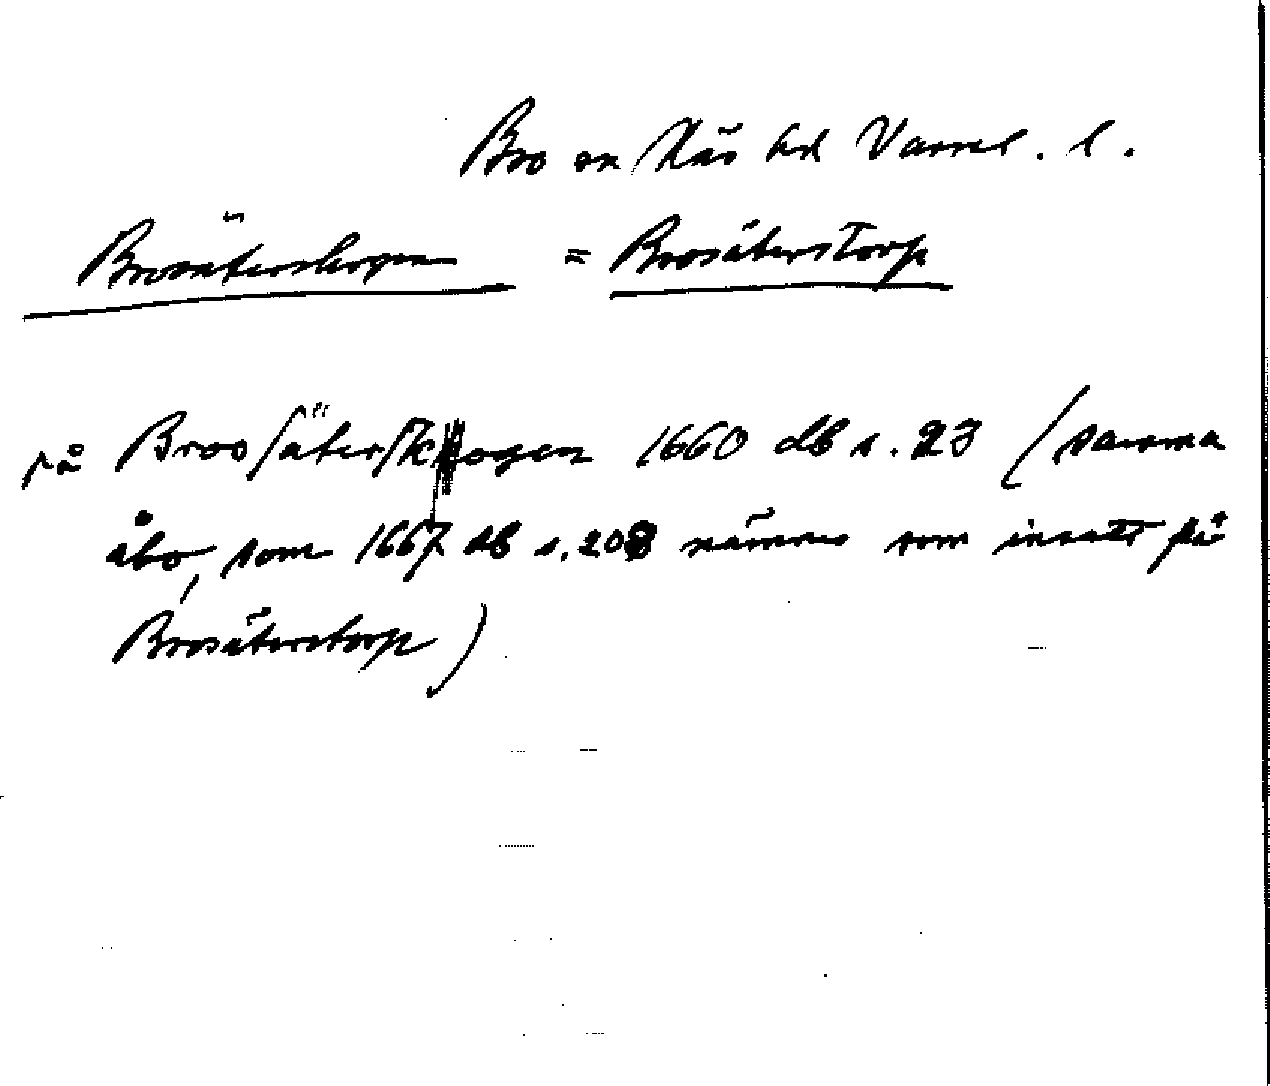 Bro sn Näs hd Värml. l.
Brosäterskogen = Brosäterstorp
på Broosäterskogen 1660 db s. 23 (samma
åbo, som 1667 db s. 208 nämnes som insatt på
Brosäterstorp)